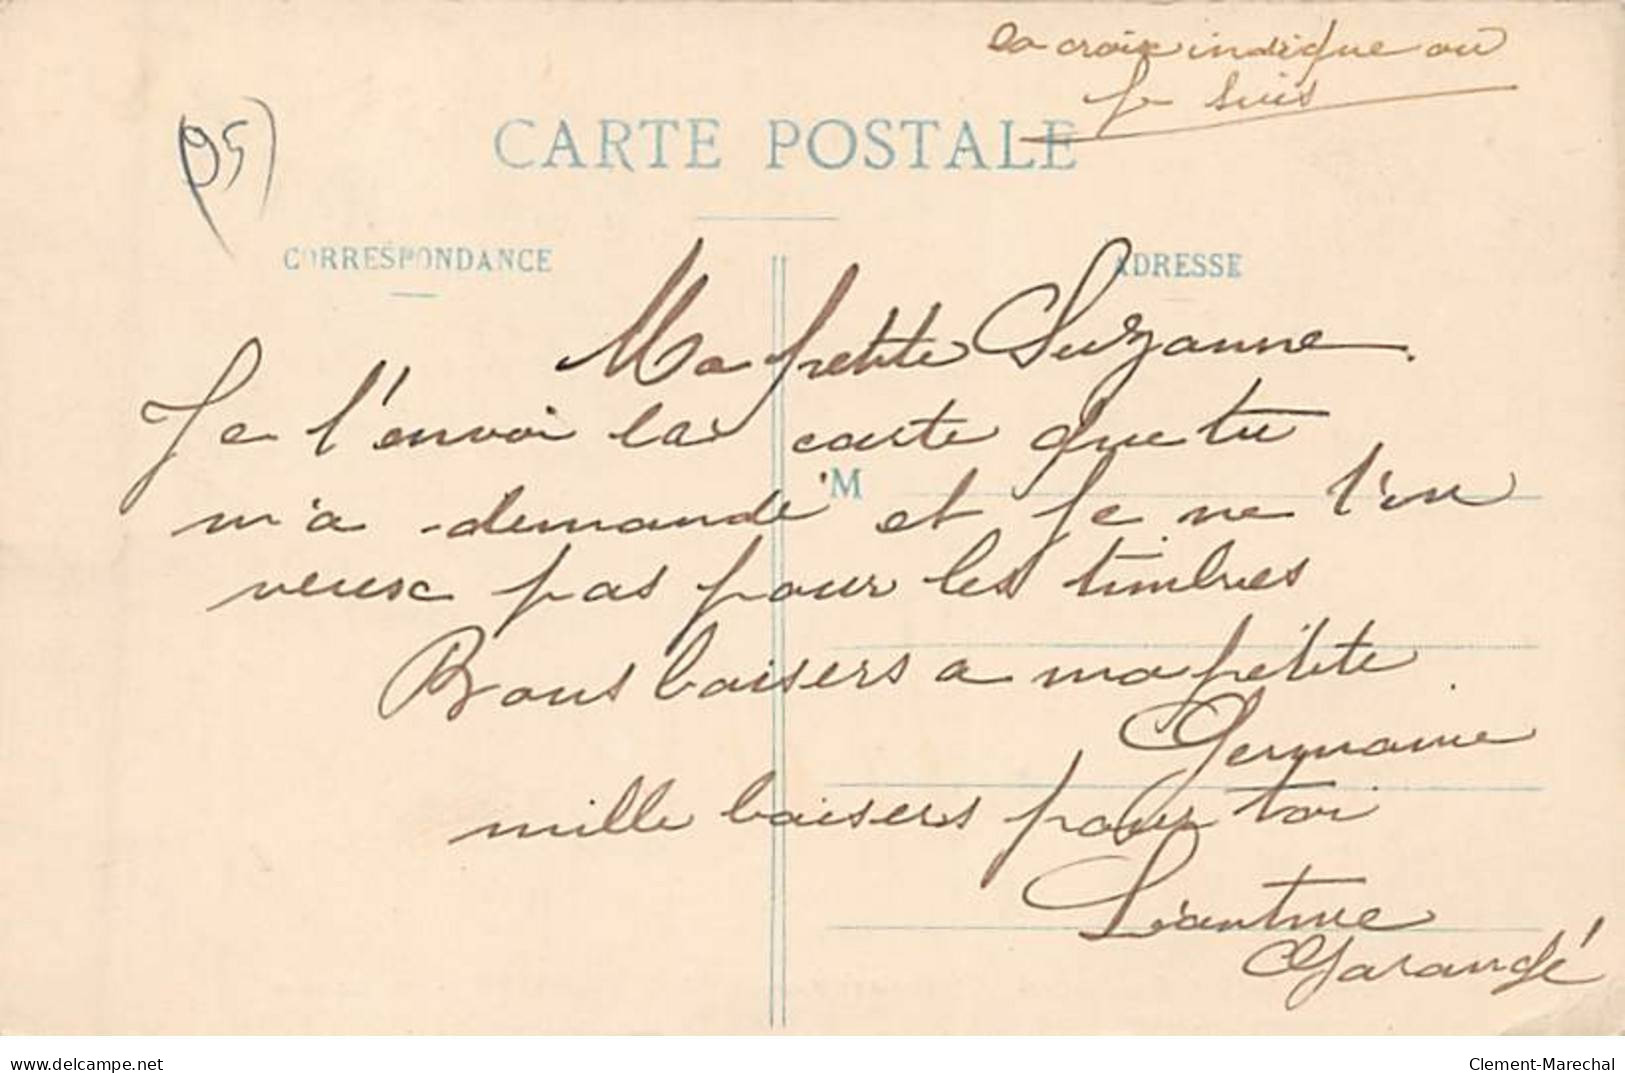 la croix indique ou
je suis
(95)
CARTE POSTALE
CORRESPONDANCE
ADRESSE
Ma petite Suzanne.
Je t'envoi la carte que tu
m'a demandé et je ne t'en
M
veux pas pour les timbres
Bons baisers a ma petite
Germaine
mille baisers pour toi
Léontine
delcampe.net
Clement-Marechal